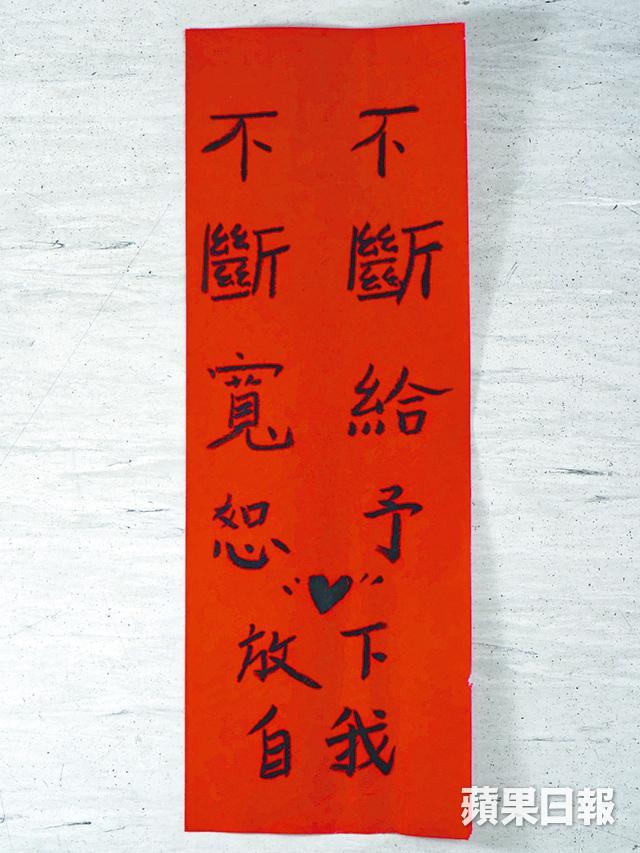 不斷給予
不斷寬恕
放下
自我
蘋果日報